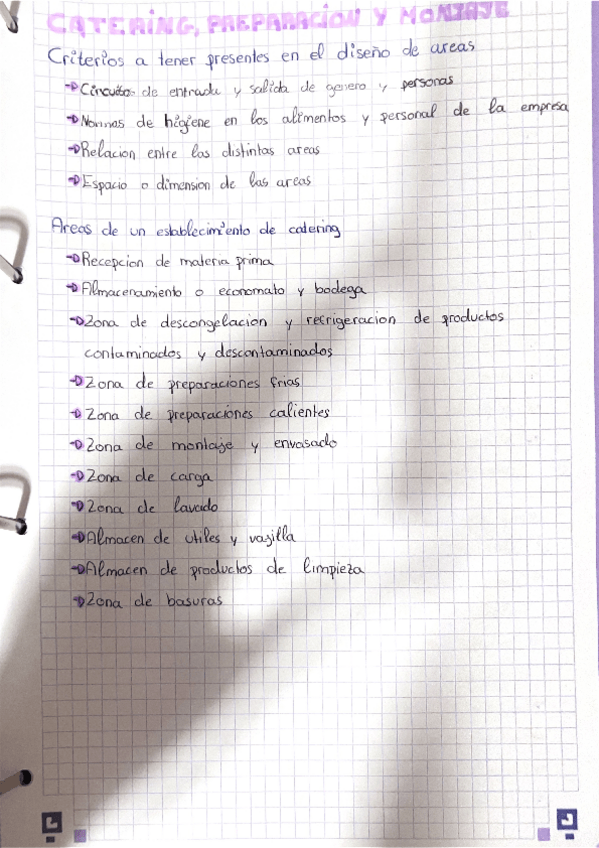 CATERING, PREPARACION Y MONTAJE
Criterios a tener presentes en el diseño de areas
Circuitos de entrada y salida de genero y personas
Normas de higiene en los alimentos y personal de la empresa
Relacion entre las distintas areas
Espacio o dimension de las areas
Areas de un establecimiento de catering
Recepcion de materia prima
Almacenamiento o economato y bodega
Zona de descongelacion y refrigeracion de productos
contaminados y descontaminados
Zona de preparaciones frias
Zona de preparaciones calientes
Zona de montaje y envasado
Zona de carga
Zona de lavado
Almacen de utiles y vajilla
Almacen de productos de limpieza
Zona de basuras